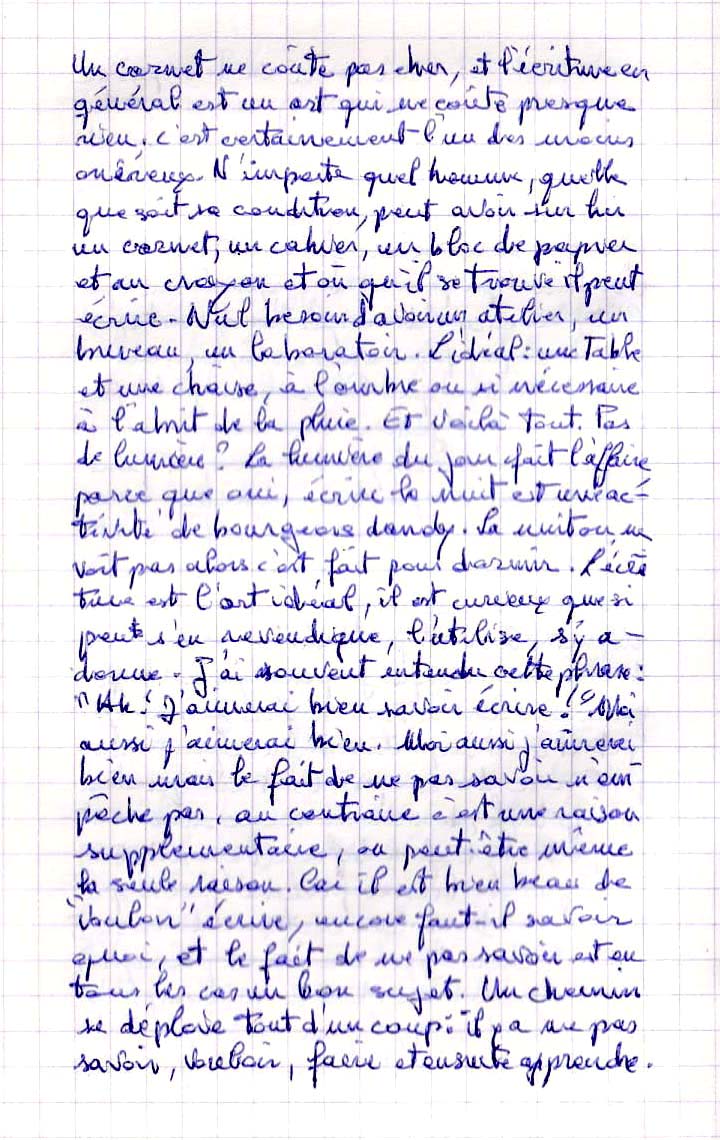 Un carnet ne coûte pas cher, et l'écriture en
général est un art qui ne coûte presque
rien, c'est certainement l'un des moins
onéreux. N'importe quel homme, quelle
que soit sa condition, peut avoir sur lui
un carnet, un cahier, un bloc de papier
et un crayon et où qu'il se trouve il peut
écrire. Nul besoin d'avoir un atelier, un
bureau, un laboratoir. L'idéal : une Table
et une chaise, à l'ombre ou si nécessaire
à l'abrit de la pluie. Et voilà tout. Pas
de lumière ? La lumière du jour fait l'affaire
parce que oui, écrire la nuit est une ac-
tivité de bourgeois dandy. La nuit on ne
voit pas alors c'est fait pour dormir. L'écri
ture est l'art idéal, il est curieux que si
peu s'en revendique, l'utilise, s'y a-
donne. J'ai souvent entendu cette phrase :
"Ah ! J'aimerai bien savoir écrire !" Moi
aussi j'aimerai bien. Moi aussi j'aimerai
bien mais le fait de ne pas savoir n'em
pêche pas, au contraire c'est une raison
supplémentaire, ou peut-être même
la seule raison. Car il est bien beau de
"vouloir" écrire, encore faut-il savoir
quoi, et le fait de ne pas savoir est en
tous les cas un bon sujet. Un chemin
se déploie tout d'un coup : il y a ne pas
savoir, vouloir, faire et ensuite apprendre.